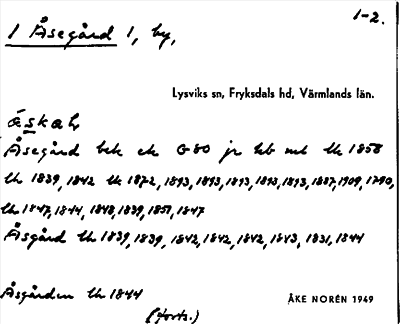 1-2.
1 Åsegård 1, by,
Lysviks sn, Fryksdals hd, Värmlands län.
Åsegård bek ek G80 jr hb mt lk 1858
lk 1839, 1842 lk 1872, 1893, 1893, 1893, 1893, 1893, 1887, 1909, 1790,
lk 1847, 1844, 1848, 1839, 1851, 1847
Åsgård lk 1839, 1839, 1842, 1842, 1842, 1843, 1831, 1844
Åsgården lk 1844
ÅKE NORÉN 1949
(forts.)